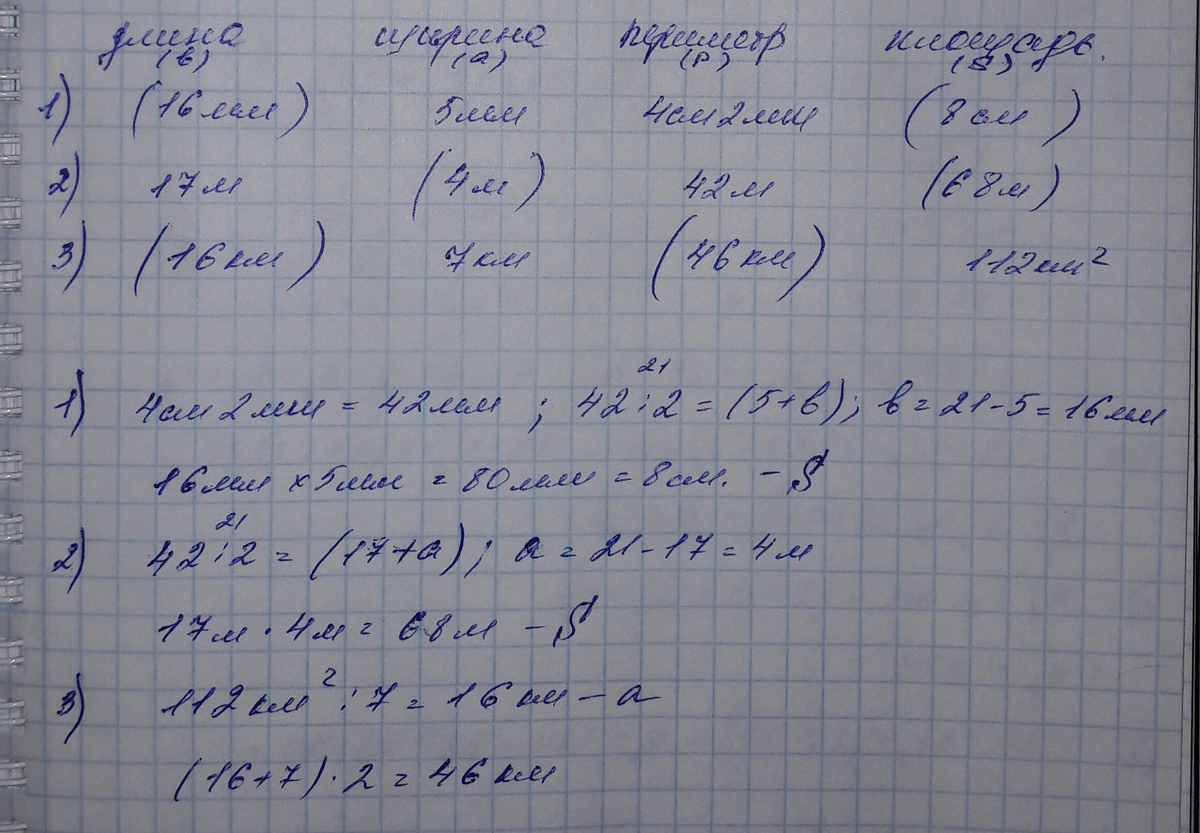 длина ширина периметр площадь.
(в) (а) (р) (S)
1) (16мм) 5мм 4см2мм (8см)
2) 17м (4м) 42м (68м)
3) (16км) 7км (46км) 112км²
21
1) 4см2мм = 42мм ; 42:2 = (5+в); в = 21-5 = 16мм
16мм х 5мм = 80мм = 8см. - S
21
2) 42:2 = (17+а); а = 21-17 = 4м
17м · 4м = 68м - S
3) 112км² : 7 = 16км - а
(16+7) · 2 = 46км